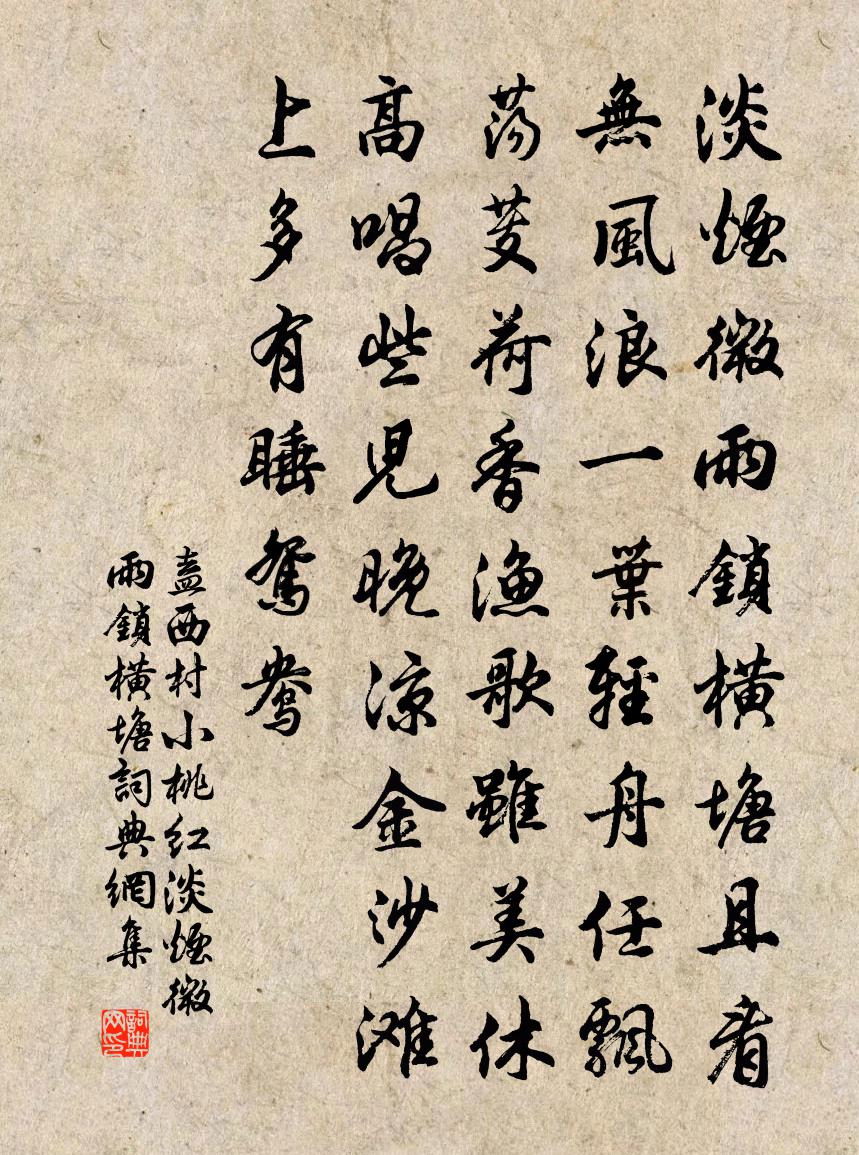 淡煙微雨鎖橫塘且看
無風浪一葉輕舟任飄
荡芰荷香漁歌雖美休
高唱些兒晚涼金沙滩
上多有睡鴛鴦
盍西村小桃红淡煙微
雨鎖橫塘詞典網集
詞典
网印